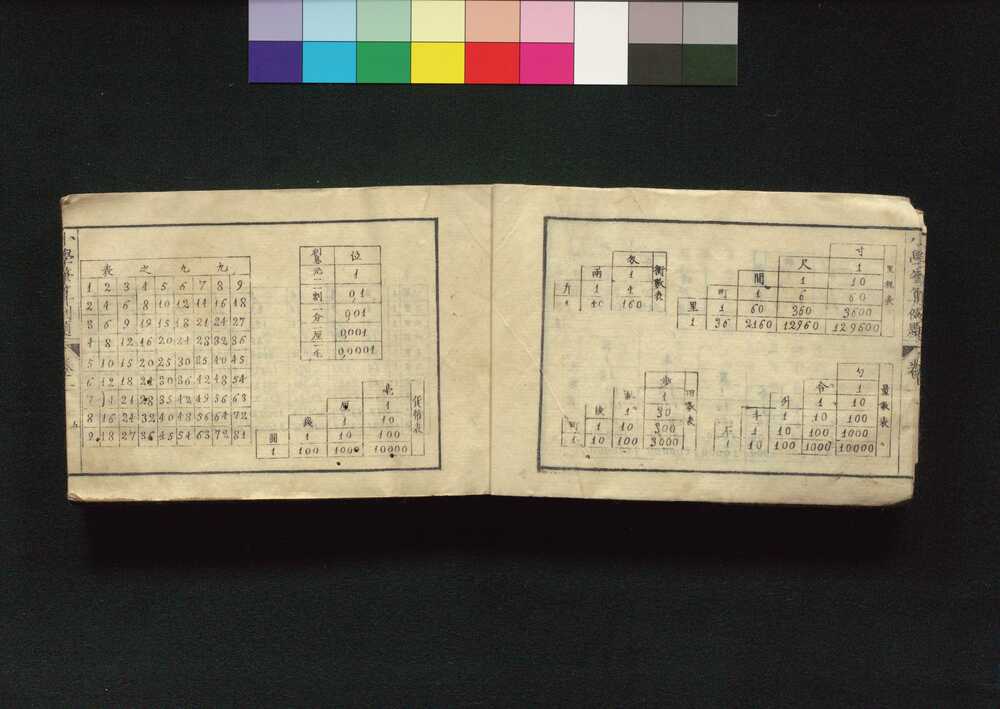 里程表
寸 1 10 60 3600 129600
尺 1 6 360 12960
間 1 60 2160
町 1 36
里 1
衡數表
1 4 160
兩 1 40
斤 1
量數表
勺 1 10 100 1000 10000
合 1 10 100 1000
升 1 10 100
斗 1 10
1
田數表
步 1 30 300 3000
畝 1 10 100
1 10
町 1
小學筭
九九之表
1 2 3 4 5 6 7 8 9
2 4 6 8 10 12 14 16 18
3 6 9 12 15 18 21 24 27
4 8 12 16 20 24 28 32 36
5 10 15 20 25 30 35 40 45
6 12 18 24 30 36 42 48 54
7 14 21 28 35 42 49 56 63
8 16 24 32 40 48 56 64 72
9 18 27 36 45 54 63 72 81
位 1
一割 0.1
一分 0.01
一厘 0.001
一毛 0.0001
貨幣表
毛 1 10 100 10000
厘 1 10 1000
錢 1 100
圓 1